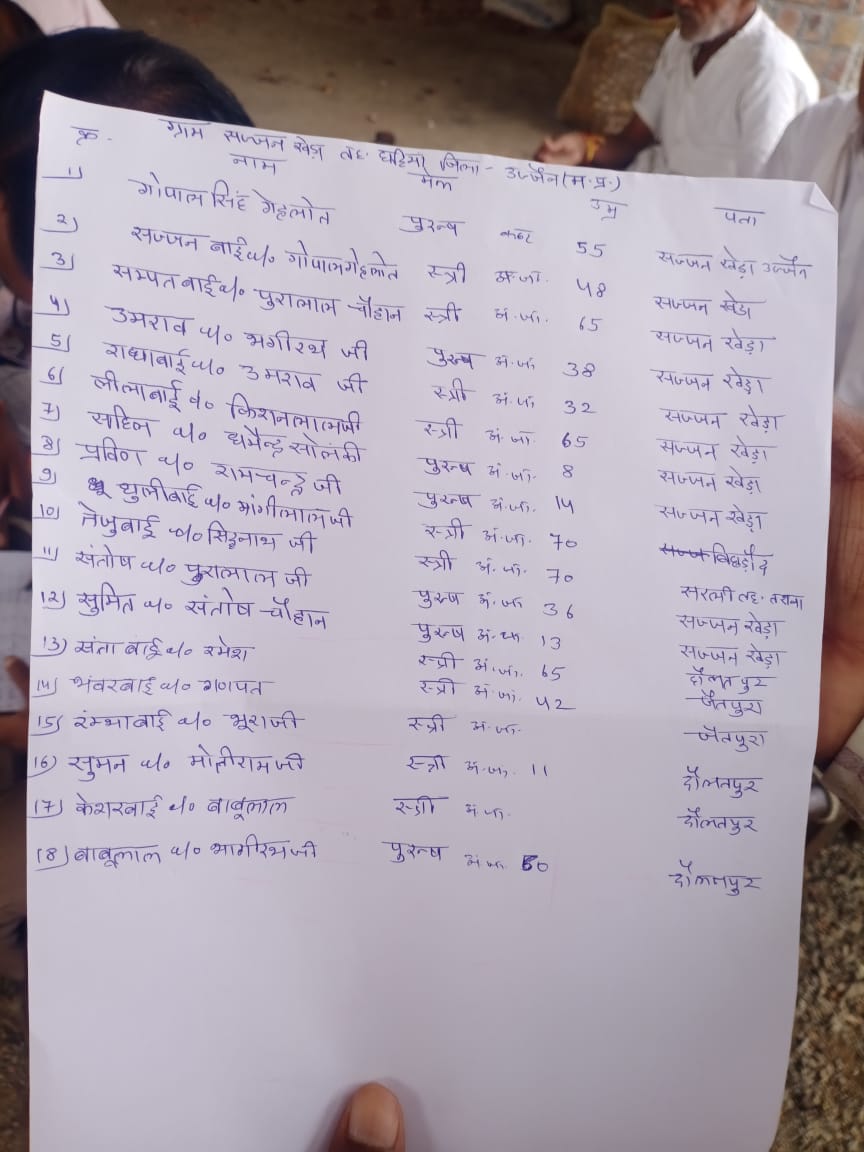 ग्राम सज्जन खेड़ा तह. घट्टिया जिला - उज्जैन (म.प्र.)
क्र. नाम मेल उम्र पता
1) गोपाल सिंह गेहलोत पुरुष 55 सज्जन खेड़ा उज्जैन
2) सज्जन बाई w/o गोपाल गेहलोत स्त्री अ.जा. 48 सज्जन खेड़ा
3) सम्पतबाई w/o पुरालाल चौहान स्त्री अं.जा. 65 सज्जन खेड़ा
4) उमराव भगीरथ जी पुरुष अं.जा. 38 सज्जन खेड़ा
5) राधाबाई w/o उमराव जी स्त्री अं.जा. 32 सज्जन खेड़ा
6) लीलाबाई किशनलालजी स्त्री अं.जा. 65 सज्जन खेड़ा
7) धर्मेन्द्र सोलंकी पुरुष अं.जा. 8 सज्जन खेड़ा
8) प्रविण रामचन्द्र जी पुरुष अं.जा. 14 सज्जन खेड़ा
9) धुलीबाई w/o मांगीलाल जी स्त्री अं.जा. 70
10) तेजुबाई सिद्धनाथ जी स्त्री अं.जा. 70 तह. तराना
11) संतोष पुरालाल जी पुरुष अं.जा. 36 सज्जन खेड़ा
12) सुमित संतोष चौहान पुरुष 13 सज्जन खेड़ा
13) संता बाई w/o रमेश स्त्री अं.जा. 65 दौलतपुर
14) भंवरबाई w/o गणपत स्त्री अं.जा. 42 जैतपुरा
15) रंम्भाबाई w/o भूराजी स्त्री अं.जा. जैतपुरा
16) सुमन मोतीरामजी स्त्री अं.जा. 11 दौलतपुर
17) केशरबाई w/o बाबूलाल स्त्री अं.जा. दौलतपुर
18) बाबूलाल भागीरथजी पुरुष अं.जा. दौलतपुर